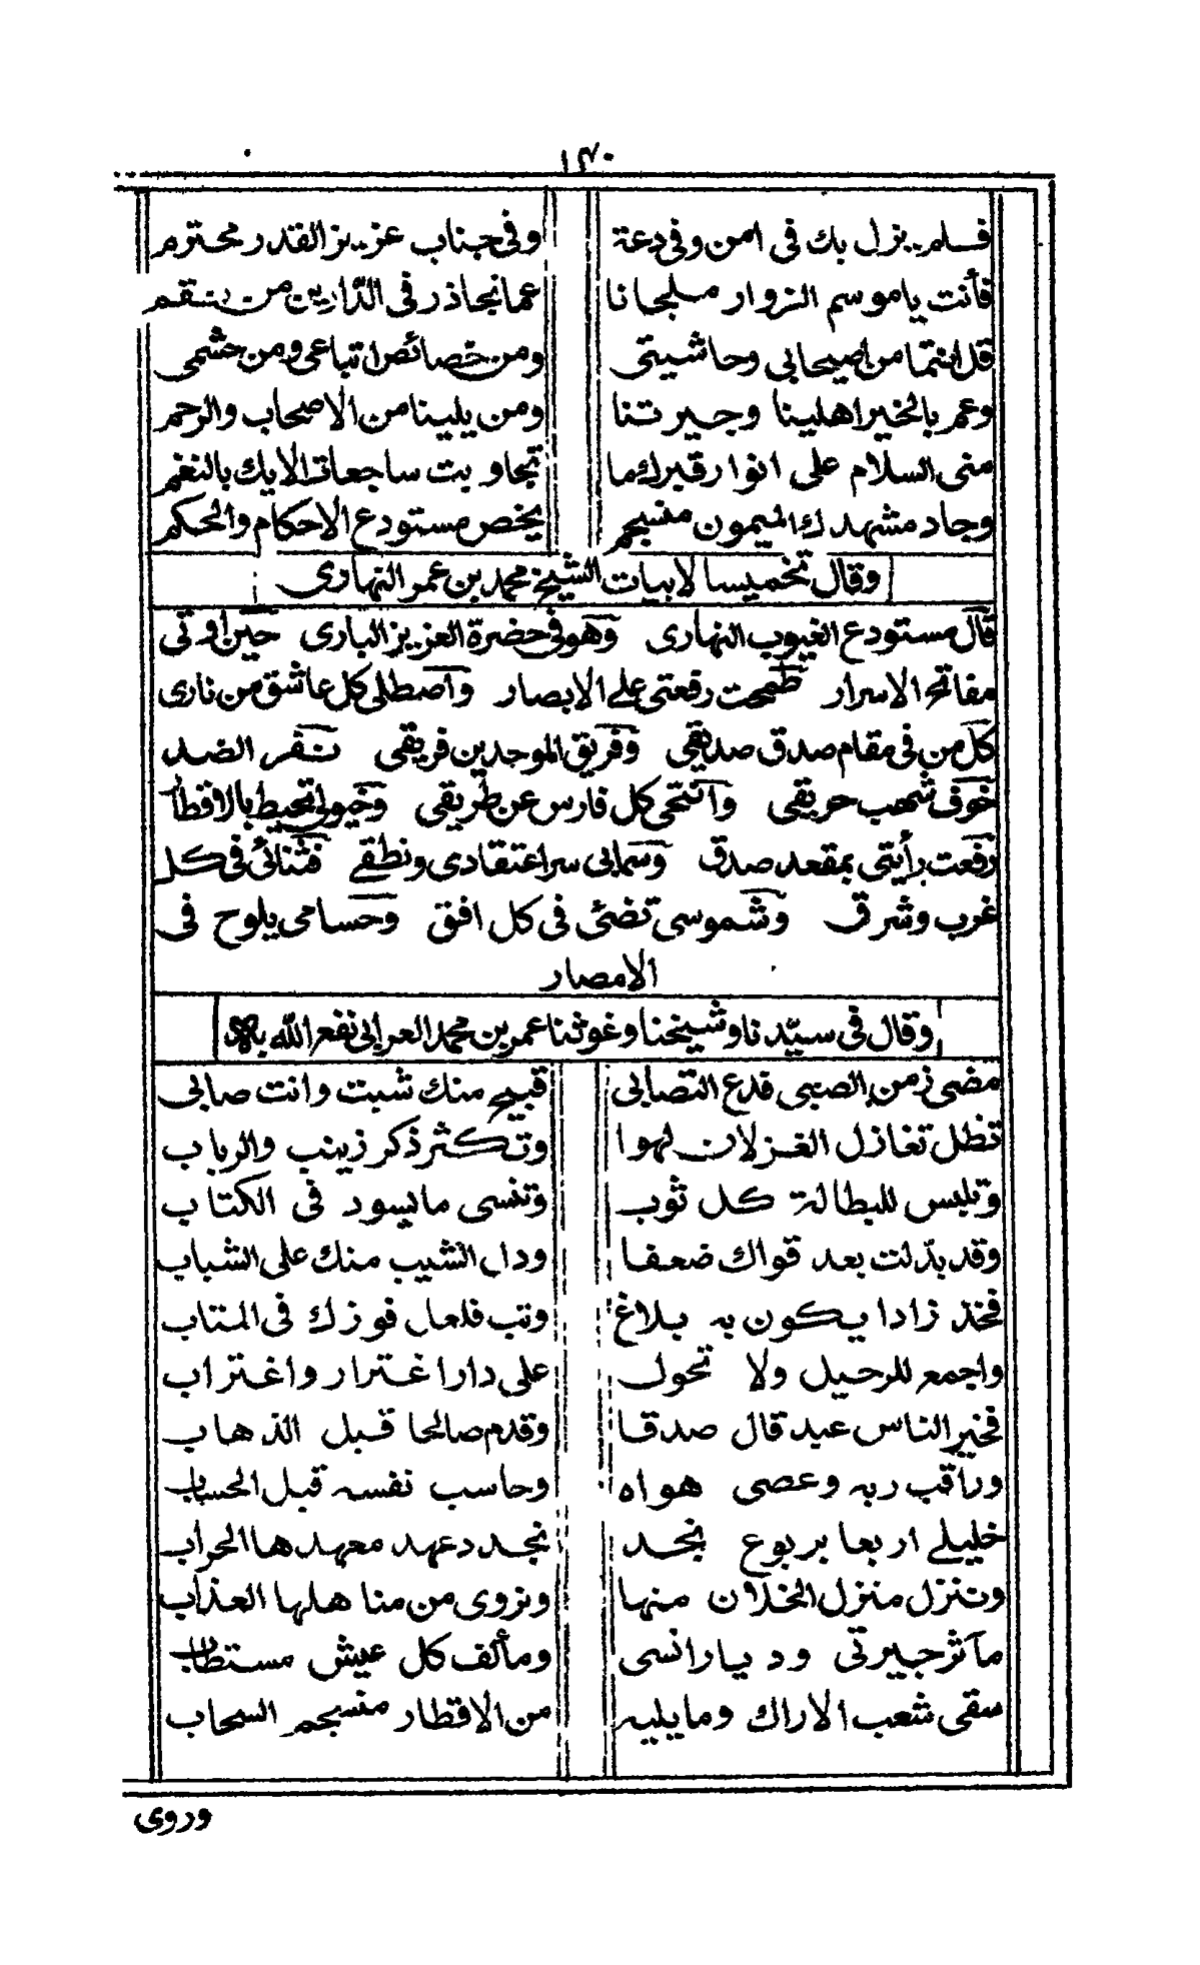 ١٣٠
فلم يزل بك فى امن وفى دعة وفى جناب عزيز القدر محترم
فأنت ياموسم الزوار ملجانا عما نحاذر فى الدّارين من نقم
قل انتما من اصيحابى وحاشيتى ومن خصائص اتباعى ومن حشمى
وعم بالخير اهلينا وجيرتنا ومن يلينا من الاصحاب والرحم
منى السلام على انوار قبرك ما تجاوبت ساجعات الايك بالنغم
وجاد مشهدك الميمون منسجم يخص مستودع الاحكام والحكم
وقال تخميسا لابيات الشيخ محمد بن عمر النهارى
قال مستودع الغيوب النهارى وهو فى حضرة العزيز البارى حين اوتى
مفاتح الاسرار طمحت رفعتى على الابصار واصطلى كل عاشق من نارى
كل من فى مقام صدق صديقى وفريق الموحدين فريقى نفر الضد
خوف شهب حريقى وانتحى كل فارس عن طريقى وخيولى تحيط بالاقطار
رفعت رأيتى بمقعد صدق وسمابى سر اعتقادى ونطقى فثنائى فى كل
غرب وشرق وشموسى تضئ فى كل افق وحسامى يلوح فى
الامصار
وقال فى سيّدنا وشيخنا وغوثنا عمر بن محمد العرابى نفع الله به
مضى زمن الصبى فدع التصابى قبيح منك شبت وانت صابى
تظل تغازل الغزلان لهوا وتكثر ذكر زينب والرباب
وتلبس للبطالة كل ثوب وتنسى ما يسود فى الكتاب
وقد بدّلت بعد قواك ضعفا ودل الشيب منك على الشباب
فخذ زادا يكون به بلاغ وتب فلعل فوزك فى المتاب
واجمع للرحيل ولا تحول على دار اغترار واغتراب
فخير الناس عبد قال صدقا وقدم صالحا قبل الذهاب
وراقب ربه وعصى هواه وحاسب نفسه قبل الحساب
خليلى اربعا بربوع نجد نجدد عهد معهدها الخراب
وننزل منزل الخلان منها ونروى من مناهلها العذاب
مآثر جيرتى وديار انسى ومألف كل عيش مستطاب
سقى شعب الاراك ومايليه من الاقطار منسجم السحاب
وروى